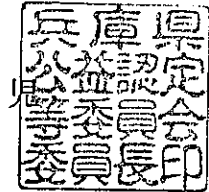 兵庫県
公益認定
等委員会
委員長印
児